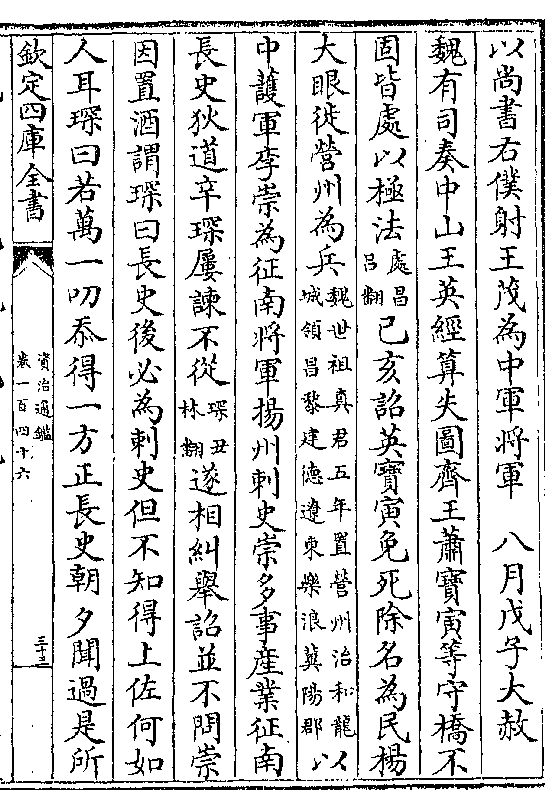 以尚書右僕射王茂為中軍將軍　八月戊子大赦
魏有司奏中山王英經算失圖齊王蕭寶寅等守橋不
固皆處以極法處昌呂翻己亥詔英寶寅免死除名為民楊
大眼徙營州為兵魏世祖真君五年置營州治和龍城領昌黎建德遼東樂浪冀陽郡以
中護軍李崇為征南將軍揚州刺史崇多事産業征南
長史狄道辛琛屢諫不從琛丑林翻遂相糾舉詔並不問崇
因置酒謂琛曰長史後必為刺史但不知得上佐何如
人耳琛曰若萬一叨忝得一方正長史朝夕聞過是所
欽定四庫全書
資治通鑑
卷一百四十六
三十三